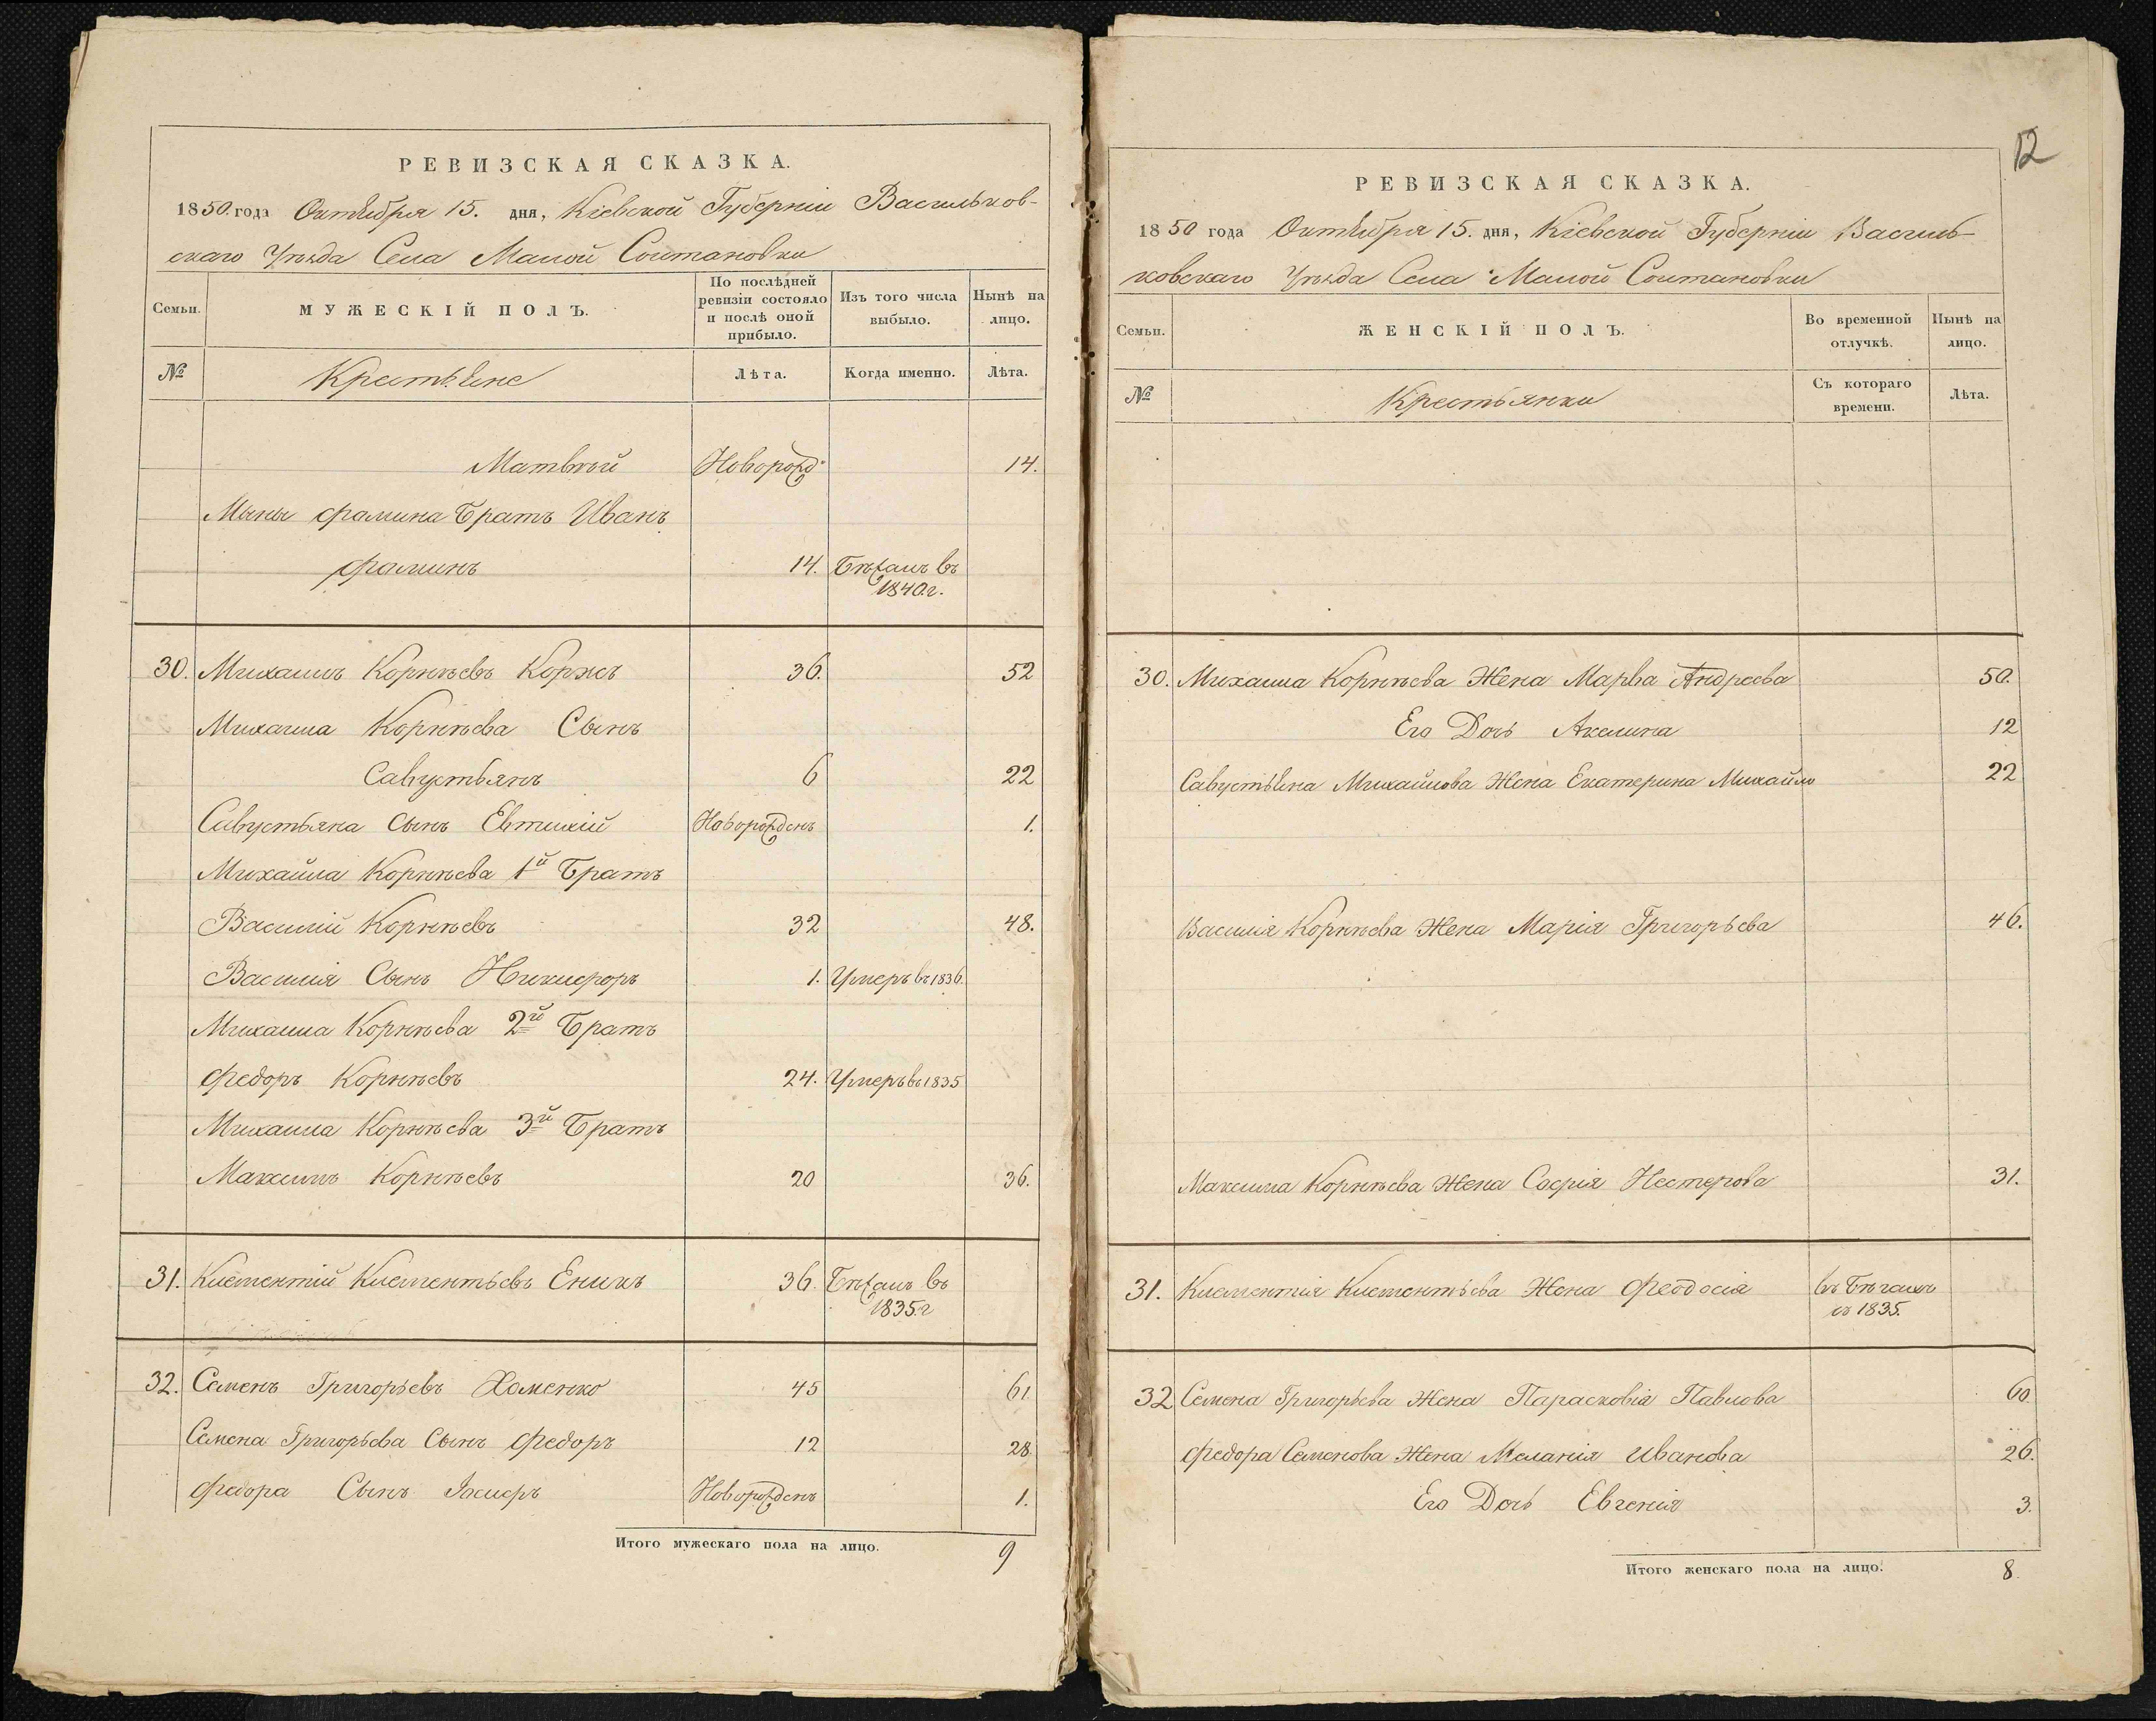 РЕВИЗСКАЯ СКАЗКА.
1850 года Октября 15. дня, Кіевской Губерніи Васильков-
скаго Уѣзда Села Малой Солтановки
Семьи.
МУЖЕСКІЙ ПОЛЪ.
По послѣдней ревизіи состояло и послѣ оной прибыло.
Изъ того числа выбыло.
Нынѣ на лицо.
№
Крестьяне
Лѣта.
Когда именно.
Лѣта.
Матвѣй Новорожд: 14.
Мины Фомина Братъ Иванъ
Фоминъ 14. Бѣжалъ въ
1840.г.
30. Михаилъ Корнѣевъ Коржъ 36. 52
Михаила Корнѣева Сынъ
Савустьянъ 6 22
Савустьяна Сынъ Евтихій Новорожденъ 1.
Михайла Корнѣева 1й Братъ
Василій Корнѣевъ 32 48.
Василія Сынъ Никифоръ 1. Умеръ въ 1836.
Михаила Корнѣева 2й Братъ
Федоръ Корнѣевъ 24. Умеръ въ 1835
Михаила Корнѣева 3й Братъ
Максимъ Корнѣевъ 20 36.
31. Климентій Климентьевъ Еникъ 36. Бѣжалъ въ
1835.г
32. Семенъ Григорьевъ Хоменко 45 61
Семена Григорьева Сынъ Федоръ 12 28.
Федора Сынъ Іосифъ Новорожденъ 1.
Итого мужескаго пола на лицо. 9
12
РЕВИЗСКАЯ СКАЗКА.
1850 года Октября 15. дня, Кіевской Губерніи Василь-
ковскаго Уѣзда Села Малой Солтановки
Семьи.
ЖЕНСКІЙ ПОЛЪ.
Во временной отлучкѣ.
Нынѣ на лицо.
№
Крестьянки
Съ котораго времени.
Лѣта.
30. Михаила Корнѣева Жена Марва Андреева 50.
Его Дочь Акелина 12
Савустьяна Михайлова Жена Екатерина Михайло 22
Василія Корнѣева Жена Марія Григорьева 46.
Максима Корнѣева Жена Софія Нестерова 31.
31. Климентія Климентьева Жена Феодосія въ Бѣгахъ
съ 1835.
32 Семена Григорьева Жена Парасковія Павлова 60
Федора Семенова Жена Меланія Иванова 26.
Его Дочь Евгенія 3.
Итого женскаго пола на лицо. 8.